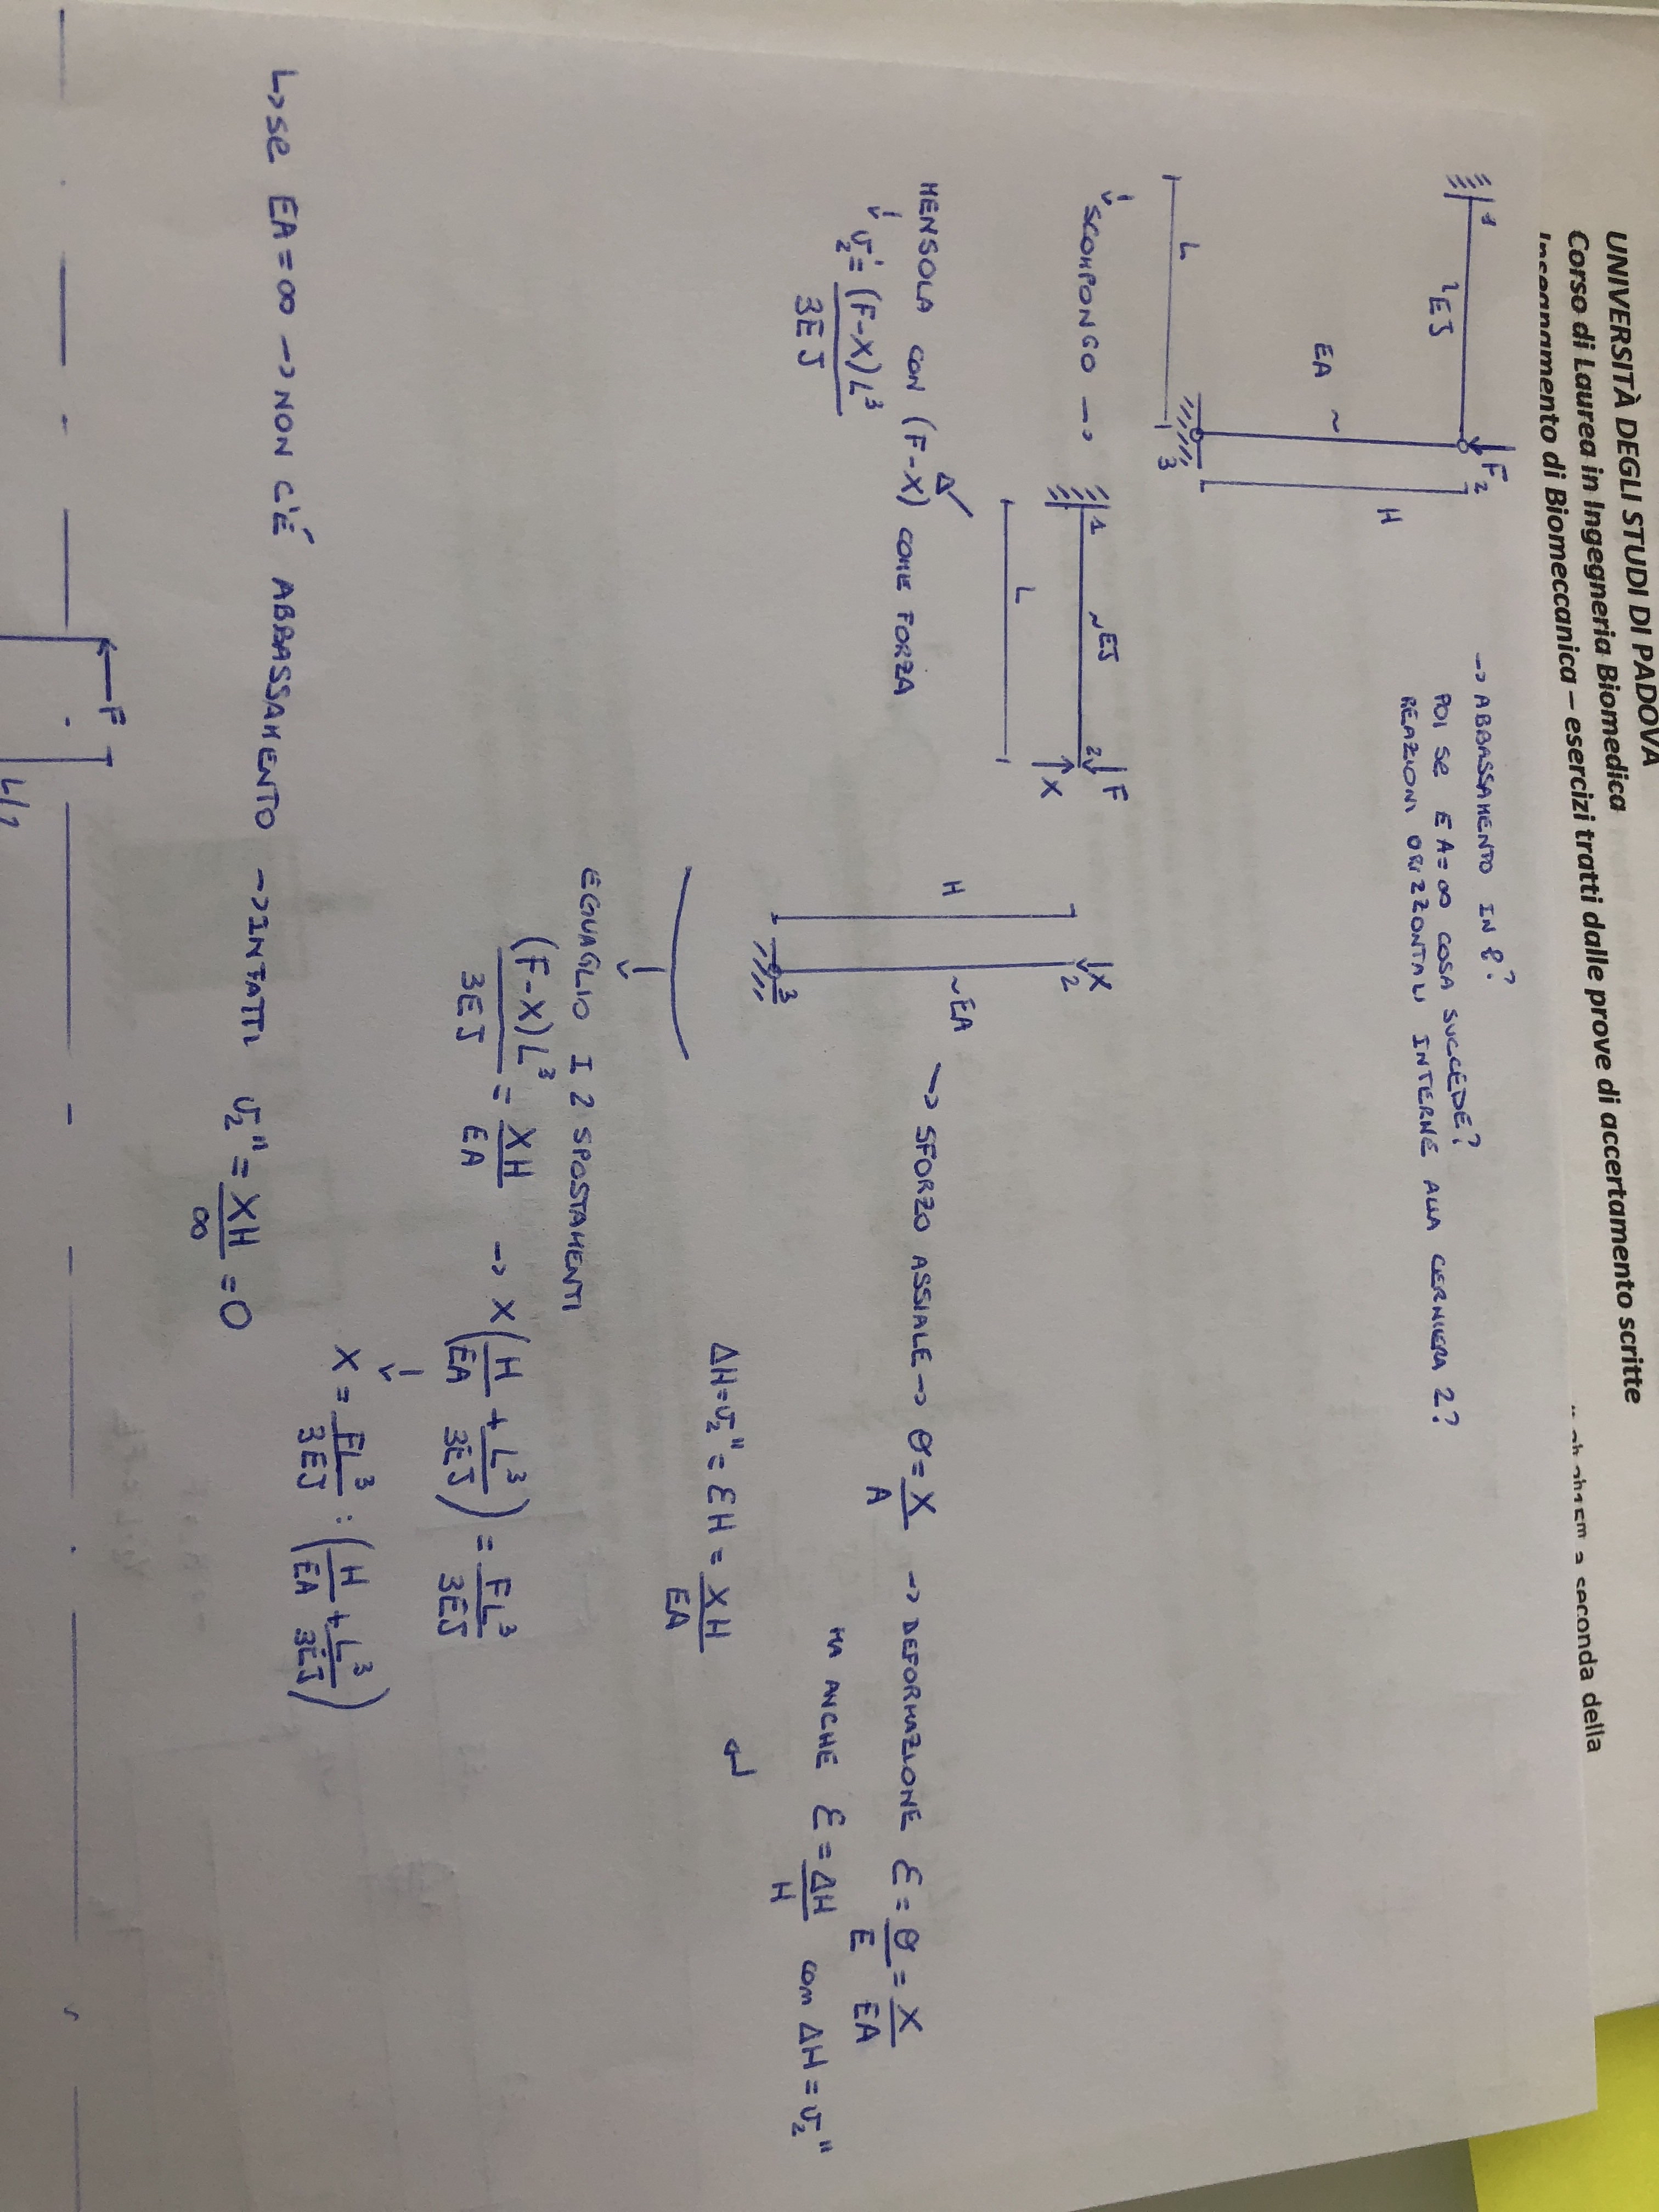 UNIVERSITÀ DEGLI STUDI DI PADOVA
Corso di Laurea in Ingegneria Biomedica
Insegnamento di Biomeccanica – esercizi tratti dalle prove di accertamento scritte
a seconda della
1
EJ
F
2
EA
H
3
L
→ ABBASSAMENTO IN 2?
POI SE EA=∞ COSA SUCCEDE?
REAZIONI ORIZZONTALI INTERNE ALLA CERNIERA 2?
SCOMPONGO →
1
EJ
2
F
X
L
X
2
H
EA
3
→ SFORZO ASSIALE → σ = X/A → DEFORMAZIONE ε = σ/E = X/EA
MA ANCHE ε = ΔH/H con ΔH = v₂"
ΔH = v₂" = εH = XH/EA
MENSOLA CON (F-X) COME FORZA
v₂' = (F-X)L³/3EJ
EGUAGLIO I 2 SPOSTAMENTI
(F-X)L³/3EJ = XH/EA → X(H/EA + L³/3EJ) = FL³/3EJ
X = FL³/3EJ : (H/EA + L³/3EJ)
↳ se EA = ∞ → NON C'É ABBASSAMENTO → INFATTI v₂" = XH/∞ = 0
F